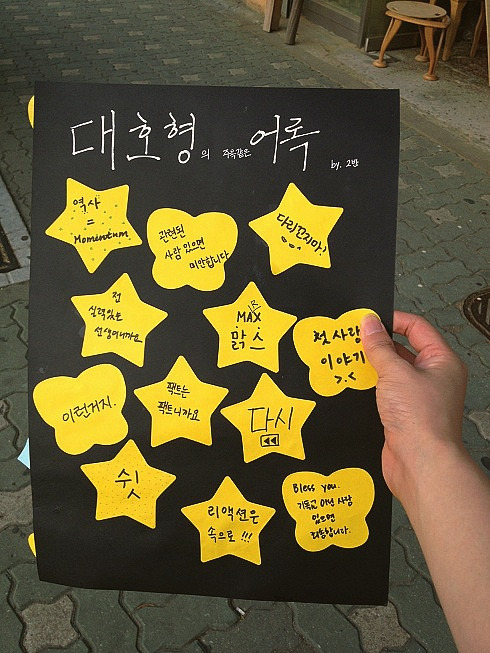 대호형의 주옥같은 어록 by. 2반
역사
=
Momentum
관련된
사람 있으면
미안합니다
다리꼬지마!
전
실력있는
선생이니까요
MAX
맑스
첫사랑
이야기
>.<
이런거지.
팩트는
팩트니까요
다시
쉿
리액션은
속으로!!!
Bless you.
기독교 아닌 사람
있으면
죄송합니다.